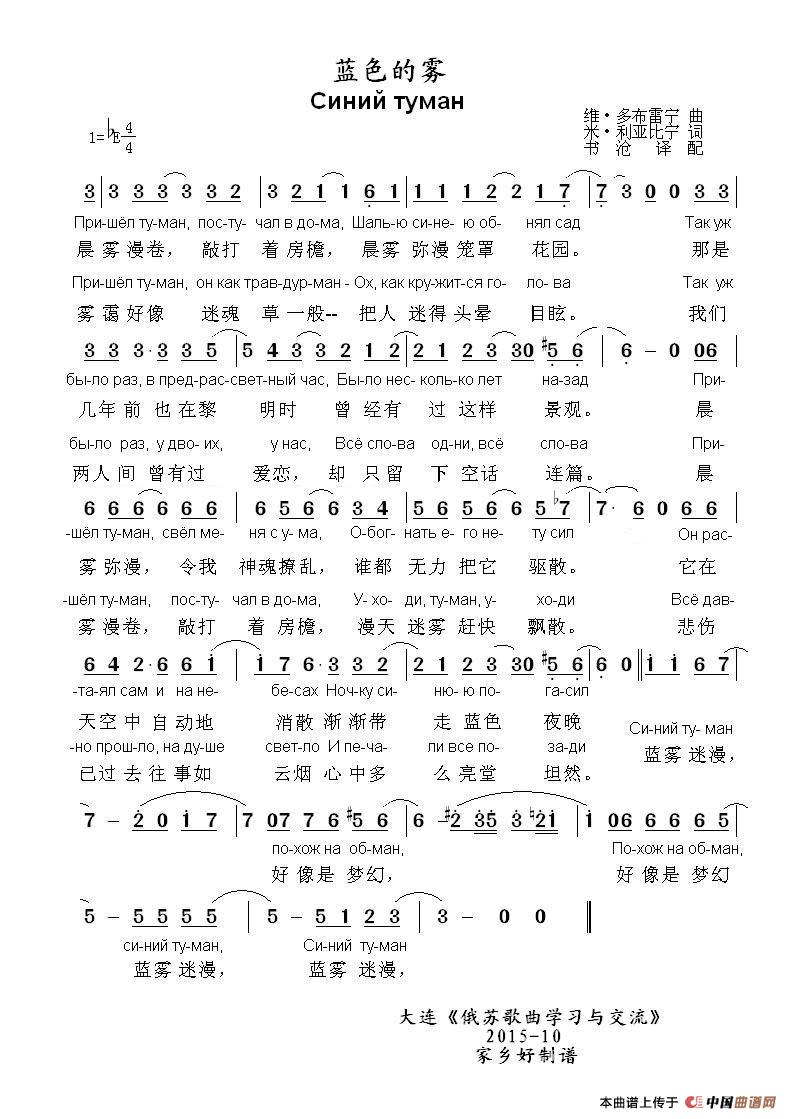 蓝色的雾
Синий туман
维·多布雷宁 曲
1=♭E 4/4
米·利亚比宁 词
书 沧 译 配
3 | 3 3 3 3 3 2 | 3 2 1 1 6 1 | 1 1 1 2 2 1 7 | 7 3 0 0 3 3 |
При-шёл ту-ман, пос-ту- чал в до-ма, Шаль-ю си-не- ю об- нял сад Так уж
晨 雾 漫卷， 敲打 着 房檐， 晨雾 弥漫 笼罩 花园。 那是
При-шёл ту-ман, он как трав-дур-ман - Ох, как кру-жит-ся го- ло-ва Так уж
雾 霭 好像 迷魂 草 一般-- 把人 迷得 头晕 目眩。 我们
3 3 3·3 3 5 | 5 4 3 3 2 1 2 | 2 1 2 3 30 #5 6 | 6 – 0 06 |
бы-ло раз, в пред-рас-свет-ный час, Бы-ло нес- коль-ко лет на-зад При-
几年 前 也 在黎 明时 曾 经有 过 这样 景观。 晨
бы-ло раз, у дво- их, у нас, Всё сло-ва од-ни, всё сло-ва При-
两人 间 曾有过 爱恋， 却 只留 下 空话 连篇。 晨
6 6 6 6 6 6 | 6 5 6 6 3 4 | 5 6 5 6 6 5 ♭7 | 7· 6 0 6 6 |
-шёл ту-ман, свёл ме- ня с у- ма, О-бог- нать е- го не- ту сил Он рас-
雾 弥漫， 令我 神魂撩乱， 谁都 无力 把它 驱散。 它在
-шёл ту-ман, пос-ту- чал в до-ма, У- хо- ди, ту-ман, у- хо-ди Всё дав-
雾 漫卷， 敲打 着 房檐， 漫天 迷雾 赶快 飘散。 悲伤
6 4 2·6 6 1 | 1 7 6·3 3 2 | 2 1 2 3 30 #5 6 | 6 0 || 1 1 6 7 |
-та-ял сам и на не- бе-сах Ноч-ку си- ню-ю по- га-сил
天空 中 自动地 消散 渐 渐带 走 蓝色 夜晚
Си-ний ту- ман
-но прош-ло, на ду-ше свет-ло И пе-ча- ли все по- за-ди
蓝雾 迷漫，
已过 去 往 事如 云烟 心 中多 么 亮堂 坦然。
7 – 2 0 1 7 | 7 07 7 6 #5 6 | 6 – #2 35 3 ♮21 | 1 06 6 6 6 5 |
по-хож на об-ман, По-хож на об-ман,
好 像是 梦幻， 好 像是 梦幻
5 – 5 5 5 5 | 5 – 5 1 2 3 | 3 – 0 0 ||
си-ний ту-ман, Си-ний ту-ман
蓝雾 迷漫， 蓝雾 迷漫，
大连《俄苏歌曲学习与交流》
2015-10
家乡好制谱
本曲谱上传于 中国曲谱网